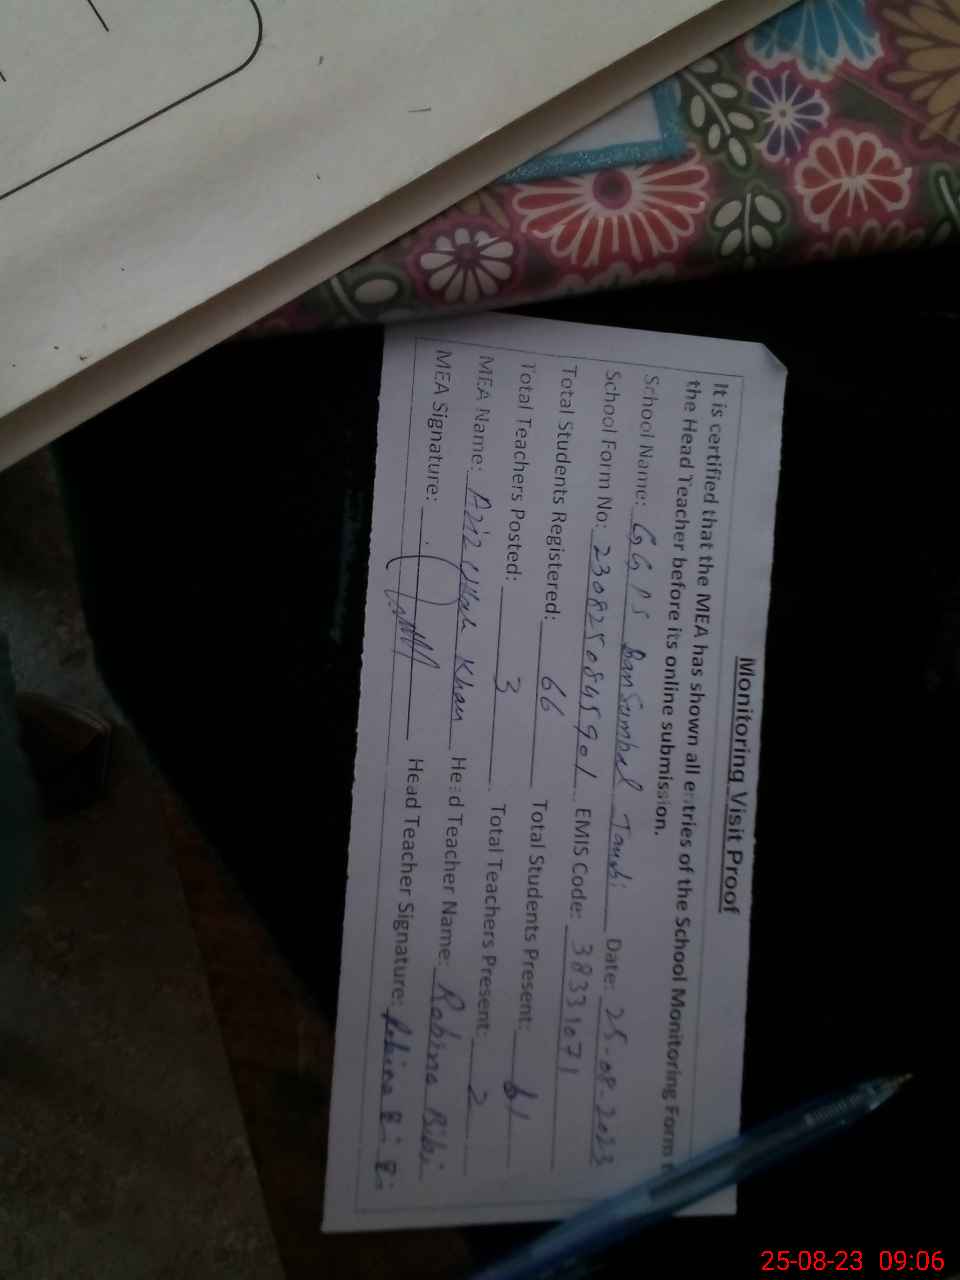 Monitoring Visit Proof
It is certified that the MEA has shown all entries of the School Monitoring Form
the Head Teacher before its online submission.
School Name: GGPS Bansumbal Tandi Date: 25-08-2023
School Form No: 2308250845901 EMIS Code: 38331071
Total Students Registered: 66 Total Students Present: 61
Total Teachers Posted: 3 Total Teachers Present: 2
MEA Name: Aziz Ullah Khan Head Teacher Name: Robina Bibi
MEA Signature: Head Teacher Signature: Robina Bibi
25-08-23 09:06